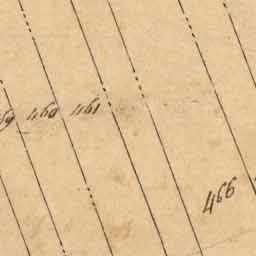 460 461
466